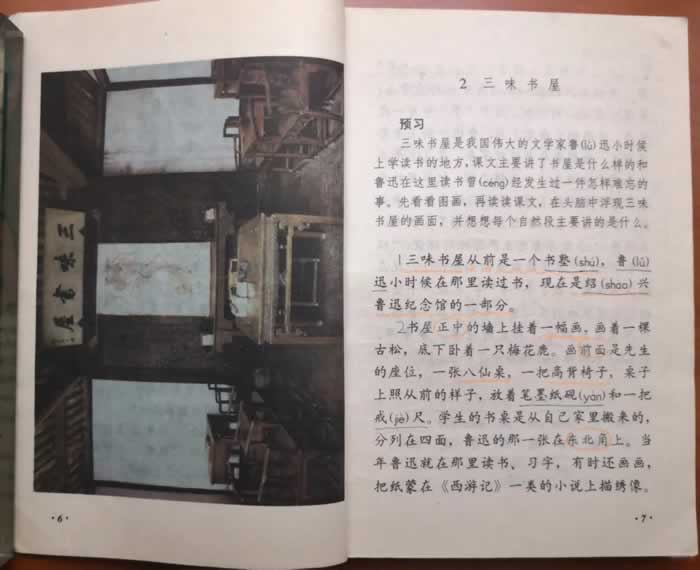 三味書屋
·6·
2 三味书屋
预习
三味书屋是我国伟大的文学家鲁(lǔ)迅小时候
上学读书的地方,课文主要讲了书屋是什么样的和
鲁迅在这里读书曾(céng)经发生过一件怎样难忘的
事。先看看图画,再读读课文,在头脑中浮现三味
书屋的画面,并想想每个自然段主要讲的是什么。
1三味书屋从前是一个书塾(shú),鲁(lǔ)
迅小时候在那里读过书,现在是绍(shào)兴
鲁迅纪念馆的一部分。
2书屋正中的墙上挂着一幅画,画着一棵
古松,底下卧着一只梅花鹿。画前面是先生
的座位,一张八仙桌,一把高背椅子,桌子
上照从前的样子,放着笔墨纸砚(yàn)和一把
戒(jiè)尺。学生的书桌是从自己家里搬来的,
分列在四面,鲁迅的那一张在东北角上。当
年鲁迅就在那里读书、习字,有时还画画,
把纸蒙在《西游记》一类的小说上描绣像。
·7·